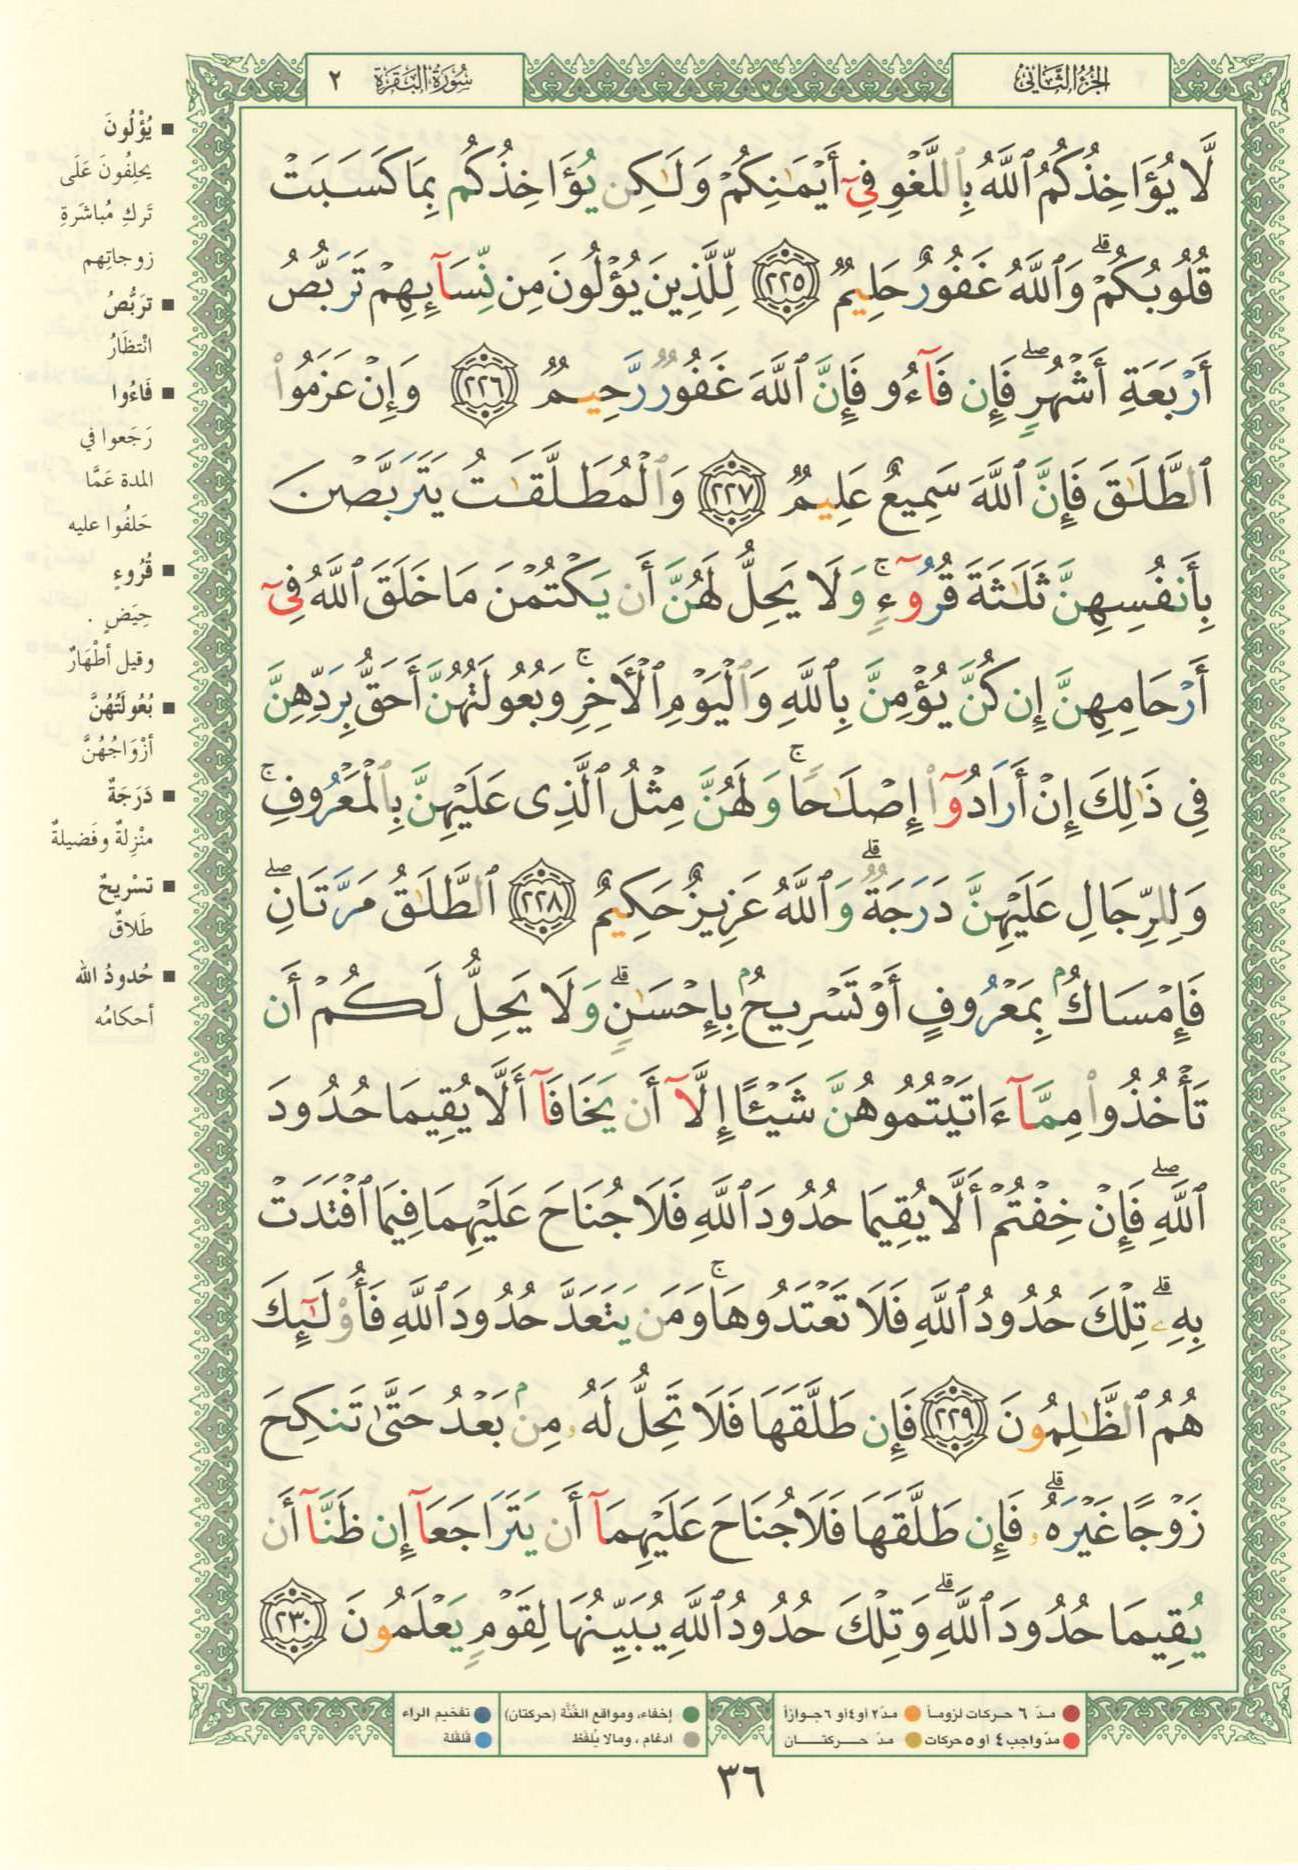 الجزء الثاني
سورة البقرة ٢
لَّا يُؤَاخِذُكُمُ ٱللَّهُ بِٱللَّغْوِ فِىٓ أَيْمَـٰنِكُمْ وَلَـٰكِن يُؤَاخِذُكُم بِمَا كَسَبَتْ
قُلُوبُكُمْ ۗ وَٱللَّهُ غَفُورٌ حَلِيمٌ ٢٢٥ لِّلَّذِينَ يُؤْلُونَ مِن نِّسَآئِهِمْ تَرَبُّصُ
أَرْبَعَةِ أَشْهُرٍ ۖ فَإِن فَآءُو فَإِنَّ ٱللَّهَ غَفُورٌ رَّحِيمٌ ٢٢٦ وَإِنْ عَزَمُوا۟
ٱلطَّلَـٰقَ فَإِنَّ ٱللَّهَ سَمِيعٌ عَلِيمٌ ٢٢٧ وَٱلْمُطَلَّقَـٰتُ يَتَرَبَّصْنَ
بِأَنفُسِهِنَّ ثَلَـٰثَةَ قُرُوٓءٍ ۚ وَلَا يَحِلُّ لَهُنَّ أَن يَكْتُمْنَ مَا خَلَقَ ٱللَّهُ فِىٓ
أَرْحَامِهِنَّ إِن كُنَّ يُؤْمِنَّ بِٱللَّهِ وَٱلْيَوْمِ ٱلْـَٔاخِرِ ۚ وَبُعُولَتُهُنَّ أَحَقُّ بِرَدِّهِنَّ
فِى ذَٰلِكَ إِنْ أَرَادُوٓا۟ إِصْلَـٰحًا ۚ وَلَهُنَّ مِثْلُ ٱلَّذِى عَلَيْهِنَّ بِٱلْمَعْرُوفِ ۚ
وَلِلرِّجَالِ عَلَيْهِنَّ دَرَجَةٌ ۗ وَٱللَّهُ عَزِيزٌ حَكِيمٌ ٢٢٨ ٱلطَّلَـٰقُ مَرَّتَانِ ۖ
فَإِمْسَاكٌۢ بِمَعْرُوفٍ أَوْ تَسْرِيحٌۢ بِإِحْسَـٰنٍ ۗ وَلَا يَحِلُّ لَكُمْ أَن
تَأْخُذُوا۟ مِمَّآ ءَاتَيْتُمُوهُنَّ شَيْـًٔا إِلَّآ أَن يَخَافَآ أَلَّا يُقِيمَا حُدُودَ
ٱللَّهِ ۖ فَإِنْ خِفْتُمْ أَلَّا يُقِيمَا حُدُودَ ٱللَّهِ فَلَا جُنَاحَ عَلَيْهِمَا فِيمَا ٱفْتَدَتْ
بِهِۦ ۗ تِلْكَ حُدُودُ ٱللَّهِ فَلَا تَعْتَدُوهَا ۚ وَمَن يَتَعَدَّ حُدُودَ ٱللَّهِ فَأُو۟لَـٰٓئِكَ
هُمُ ٱلظَّـٰلِمُونَ ٢٢٩ فَإِن طَلَّقَهَا فَلَا تَحِلُّ لَهُۥ مِنۢ بَعْدُ حَتَّىٰ تَنكِحَ
زَوْجًا غَيْرَهُۥ ۗ فَإِن طَلَّقَهَا فَلَا جُنَاحَ عَلَيْهِمَآ أَن يَتَرَاجَعَآ إِن ظَنَّآ أَن
يُقِيمَا حُدُودَ ٱللَّهِ ۗ وَتِلْكَ حُدُودُ ٱللَّهِ يُبَيِّنُهَا لِقَوْمٍ يَعْلَمُونَ ٢٣٠
■ يُؤْلُونَ
يحلِفُونَ عَلَى
تَركِ مُباشَرةِ
زوجاتِهم
■ تَرَبُّصُ
انْتظَارُ
■ فَاءُوا
رَجَعوا في
المدة عَمَّا
حَلفُوا عليه
■ قُرُوءٍ
حِيَضٍ .
وقيل أَطْهَارٌ
■ بُعُولَتُهُنَّ
أزْوَاجُهُنَّ
■ دَرَجَةٌ
منْزِلةٌ وفَضيلةٌ
■ تسْرِيحٌ
طَلاقٌ
■ حُدودُ الله
أحكامُه
مدّ ٦ حركات لزوماً
مدّ ٢ او ٤ او ٦ جوازاً
إخفاء، ومواقع الغُنَّة (حركتان)
تفخيم الراء
مدّ واجب ٤ او ٥ حركات
مدّ حركتان
ادغام ، ومالا يُلفَظ
قلقلة
٣٦